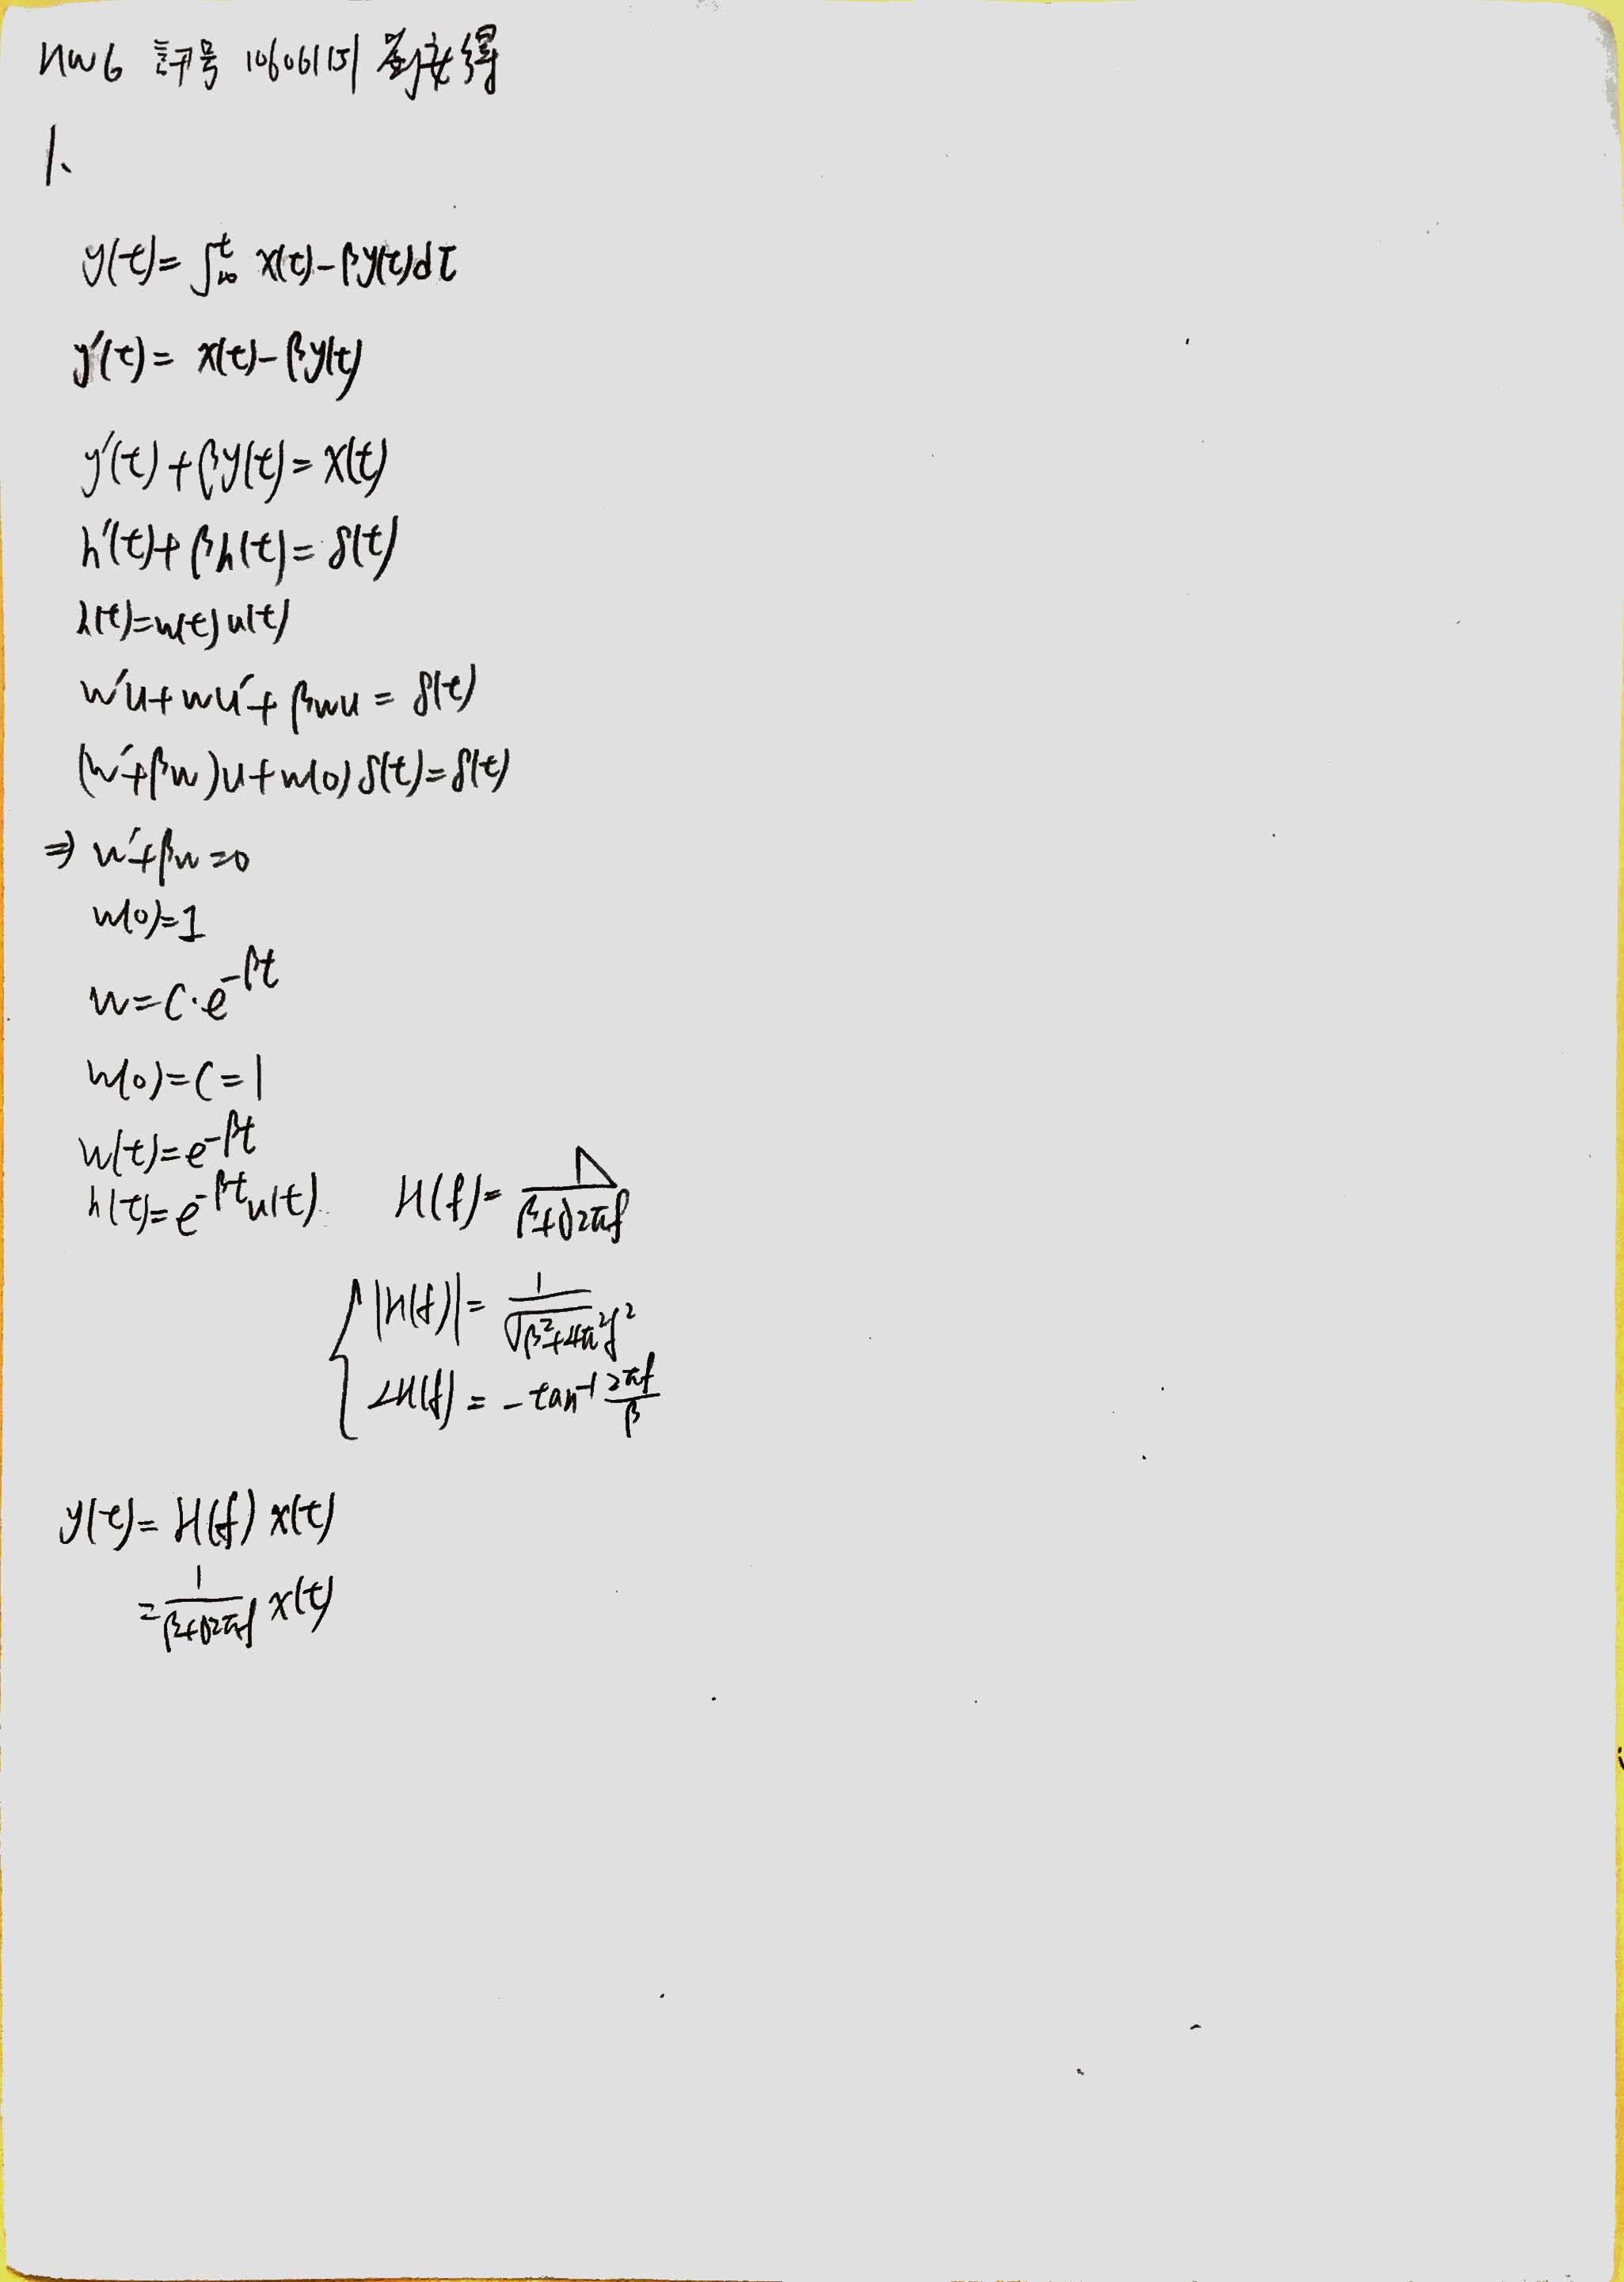 HW6 訊号 106061151 劉安得
1、
y(t)=∫_{-∞}^{t} x(τ)-βy(τ)dτ
y'(t)= x(t)-βy(t)
y'(t)+βy(t)=x(t)
h'(t)+βh(t)=δ(t)
h(t)=w(t)u(t)
w'u+wu'+βwu=δ(t)
(w'+βw)u+w(0)δ(t)=δ(t)
⇒ w'+βw=0
w(0)=1
w=C·e^{-βt}
w(0)=C=1
w(t)=e^{-βt}
h(t)=e^{-βt}u(t) H(f)=1/(β+j2πf)
|H(f)|=1/√(β²+4π²f²)
∠H(f)=-tan⁻¹ 2πf/β
y(t)=H(f) x(t)
=1/(β+j2πf) x(t)